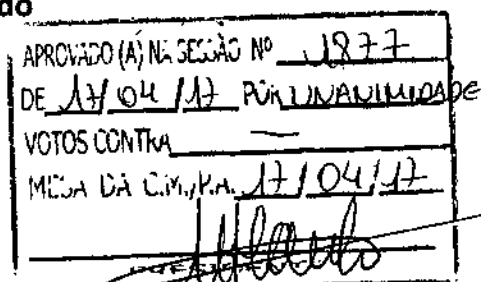 do
APROVADO (A) NA SESSÃO Nº 1877
DE 17/04/17 POR UNANIMIDADE
VOTOS CONTRA —
MESA DA C.M., P.A. 17/04/17